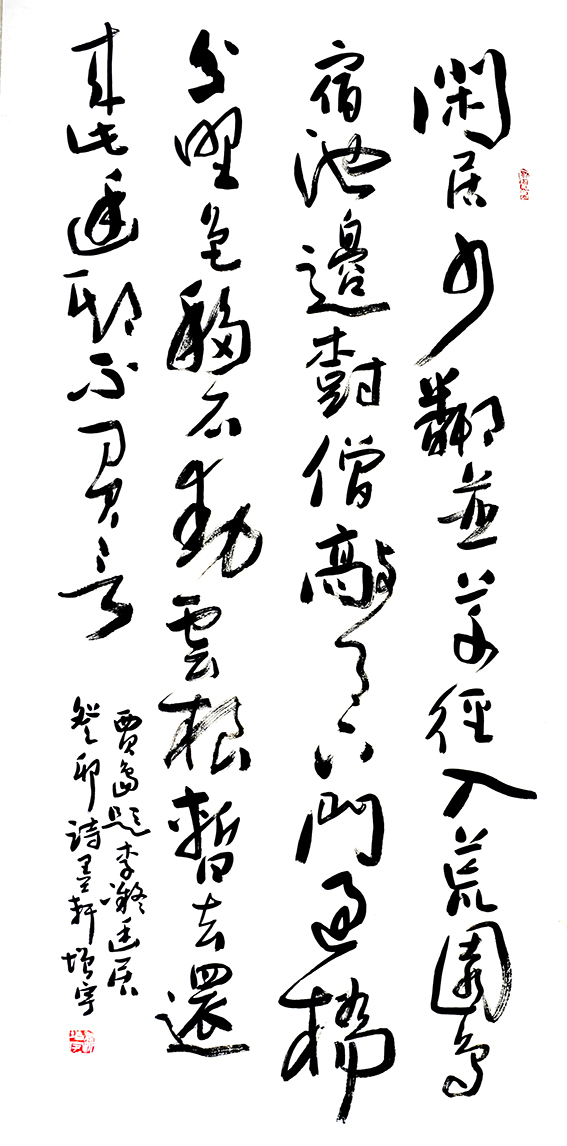 閑居少鄰並草徑入荒園鳥
宿池邊樹僧敲月下門過橋
分野色移石動雲根暫去還
來此幽期不負言
賈島題李凝幽居
癸卯詩墨軒增宇